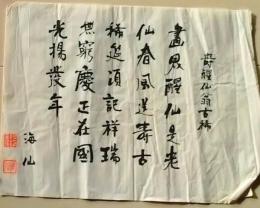 壽醒仙翁古稀
畫界醒仙是老
仙春風送壽古
稀延頌記祥瑞
無窮慶正在國
光揚發年
海仙